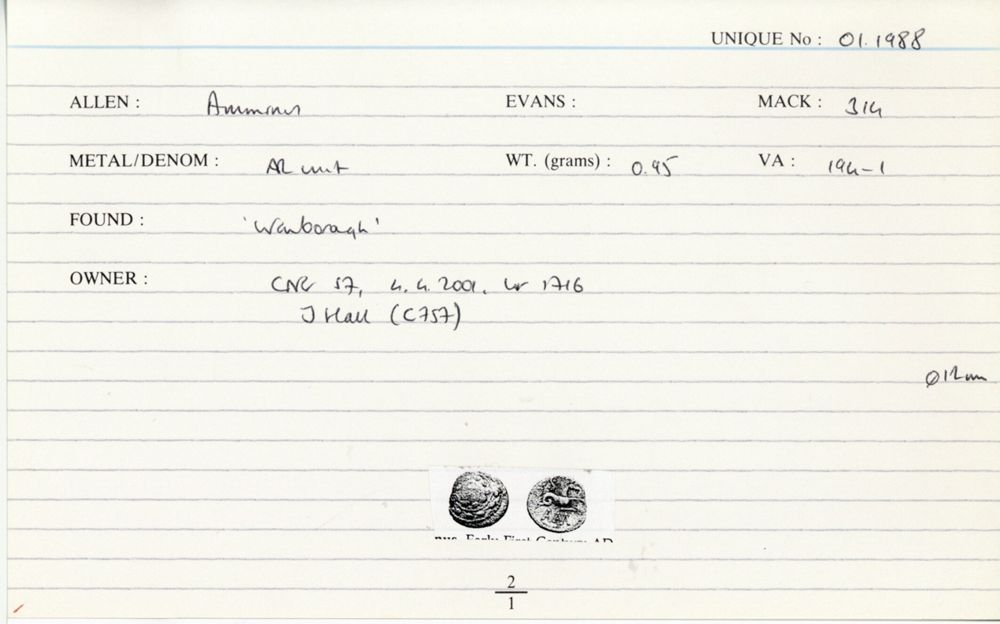 UNIQUE No : 01.1988
ALLEN : Amminus EVANS : MACK : 314
METAL/DENOM : AR unit WT. (grams) : 0.95 VA : 194-1
FOUND : 'Wanborough'
OWNER : CNG 57, 4.4.2001, lot 1716
J Hall (C757)
Ø12mm
nus, Early First Century AD
2
1